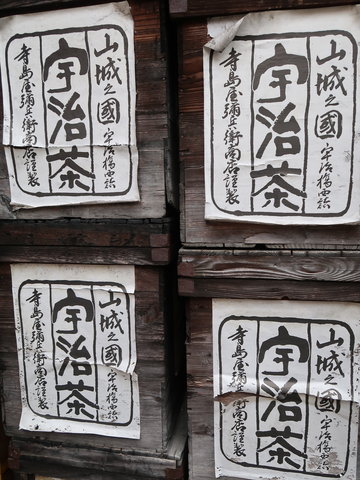 山城之國
宇治橋西詰
宇治茶
寺島屋彌兵衛商店謹製
山城之國
宇治橋西詰
宇治茶
寺島屋彌兵衛商店謹製
山城之國
宇治橋西詰
宇治茶
寺島屋彌兵衛商店謹製
山城之國
宇治橋西詰
宇治茶
寺島屋彌兵衛商店謹製